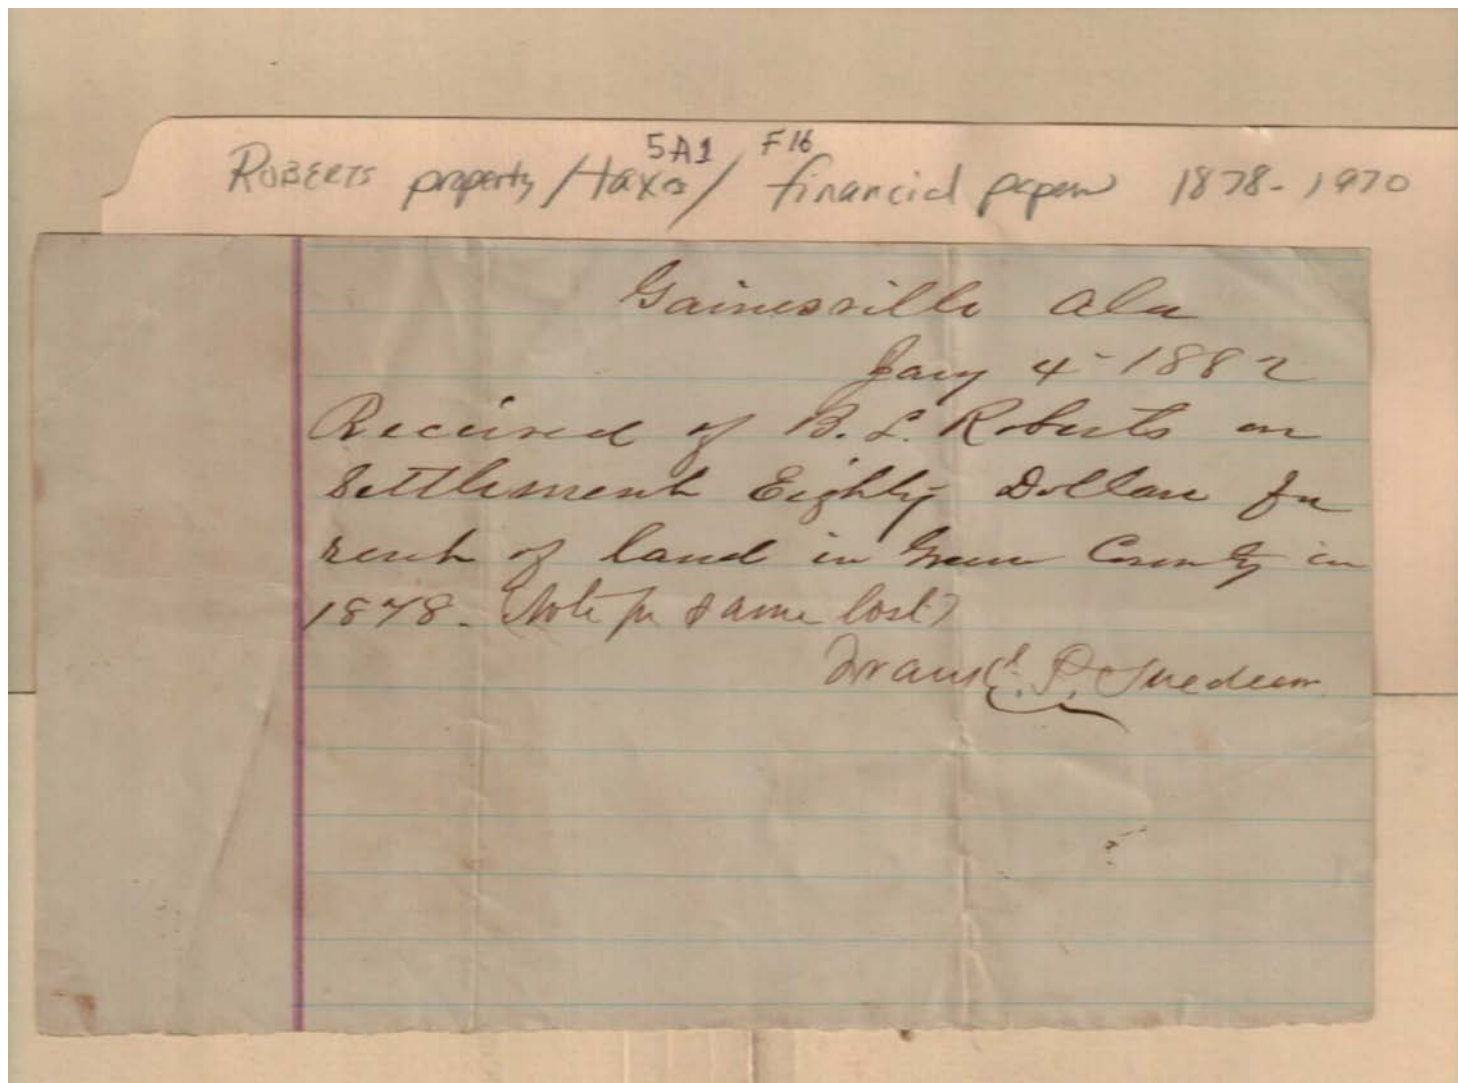 5A1 F16
ROBERTS property/taxes/financial papers 1878-1970
Gainesville Ala
Jany 4 - 1882
Received of B. L. Roberts on
Settlement Eighty Dollars for
rent of land in Green County in
1878. Note for same lost
P.